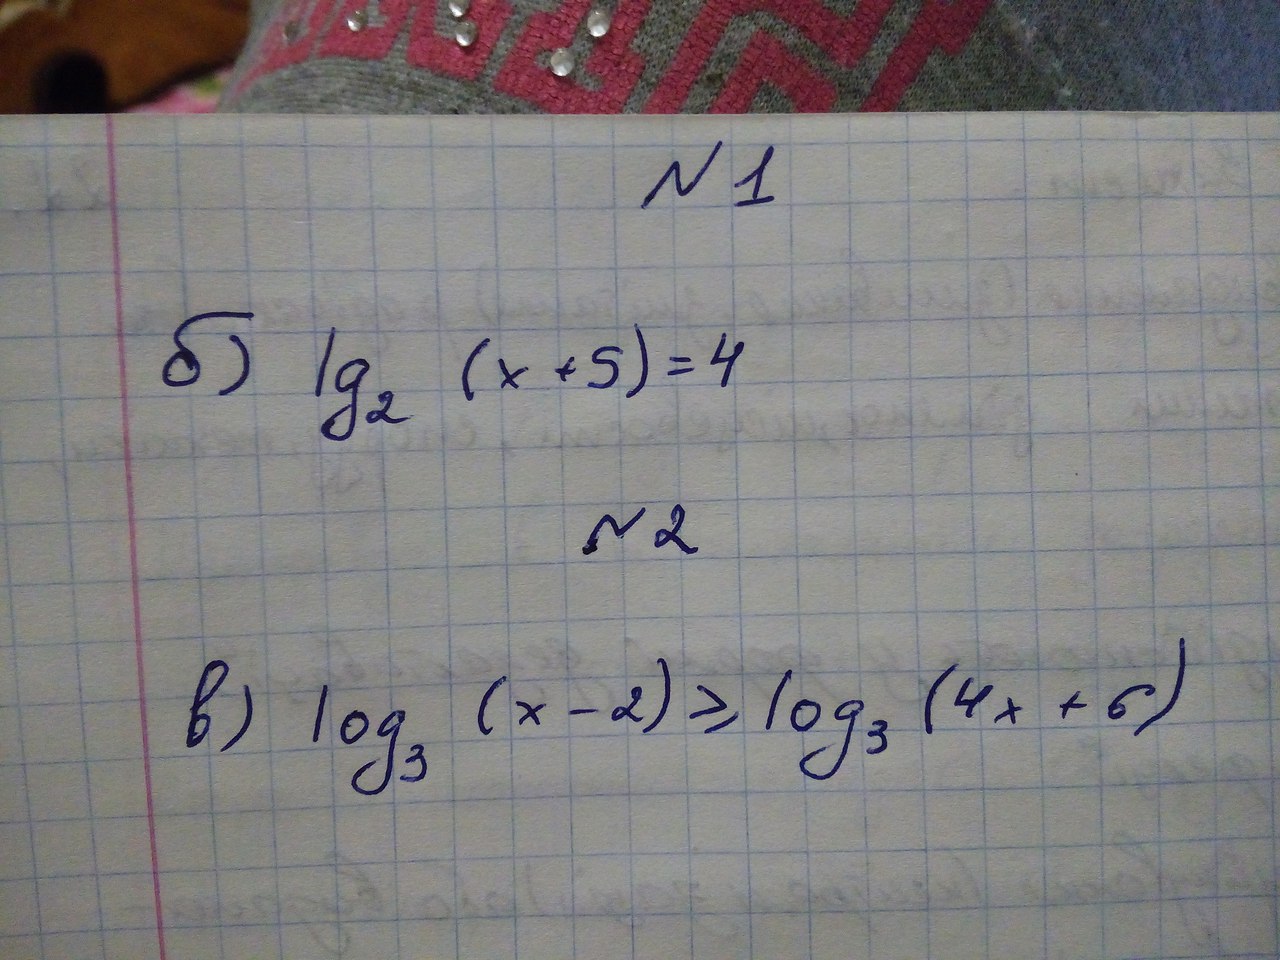 N1
б) lg₂ (x+5)=4
N2
в) log₃ (x-2)≥log₃ (4x+6)